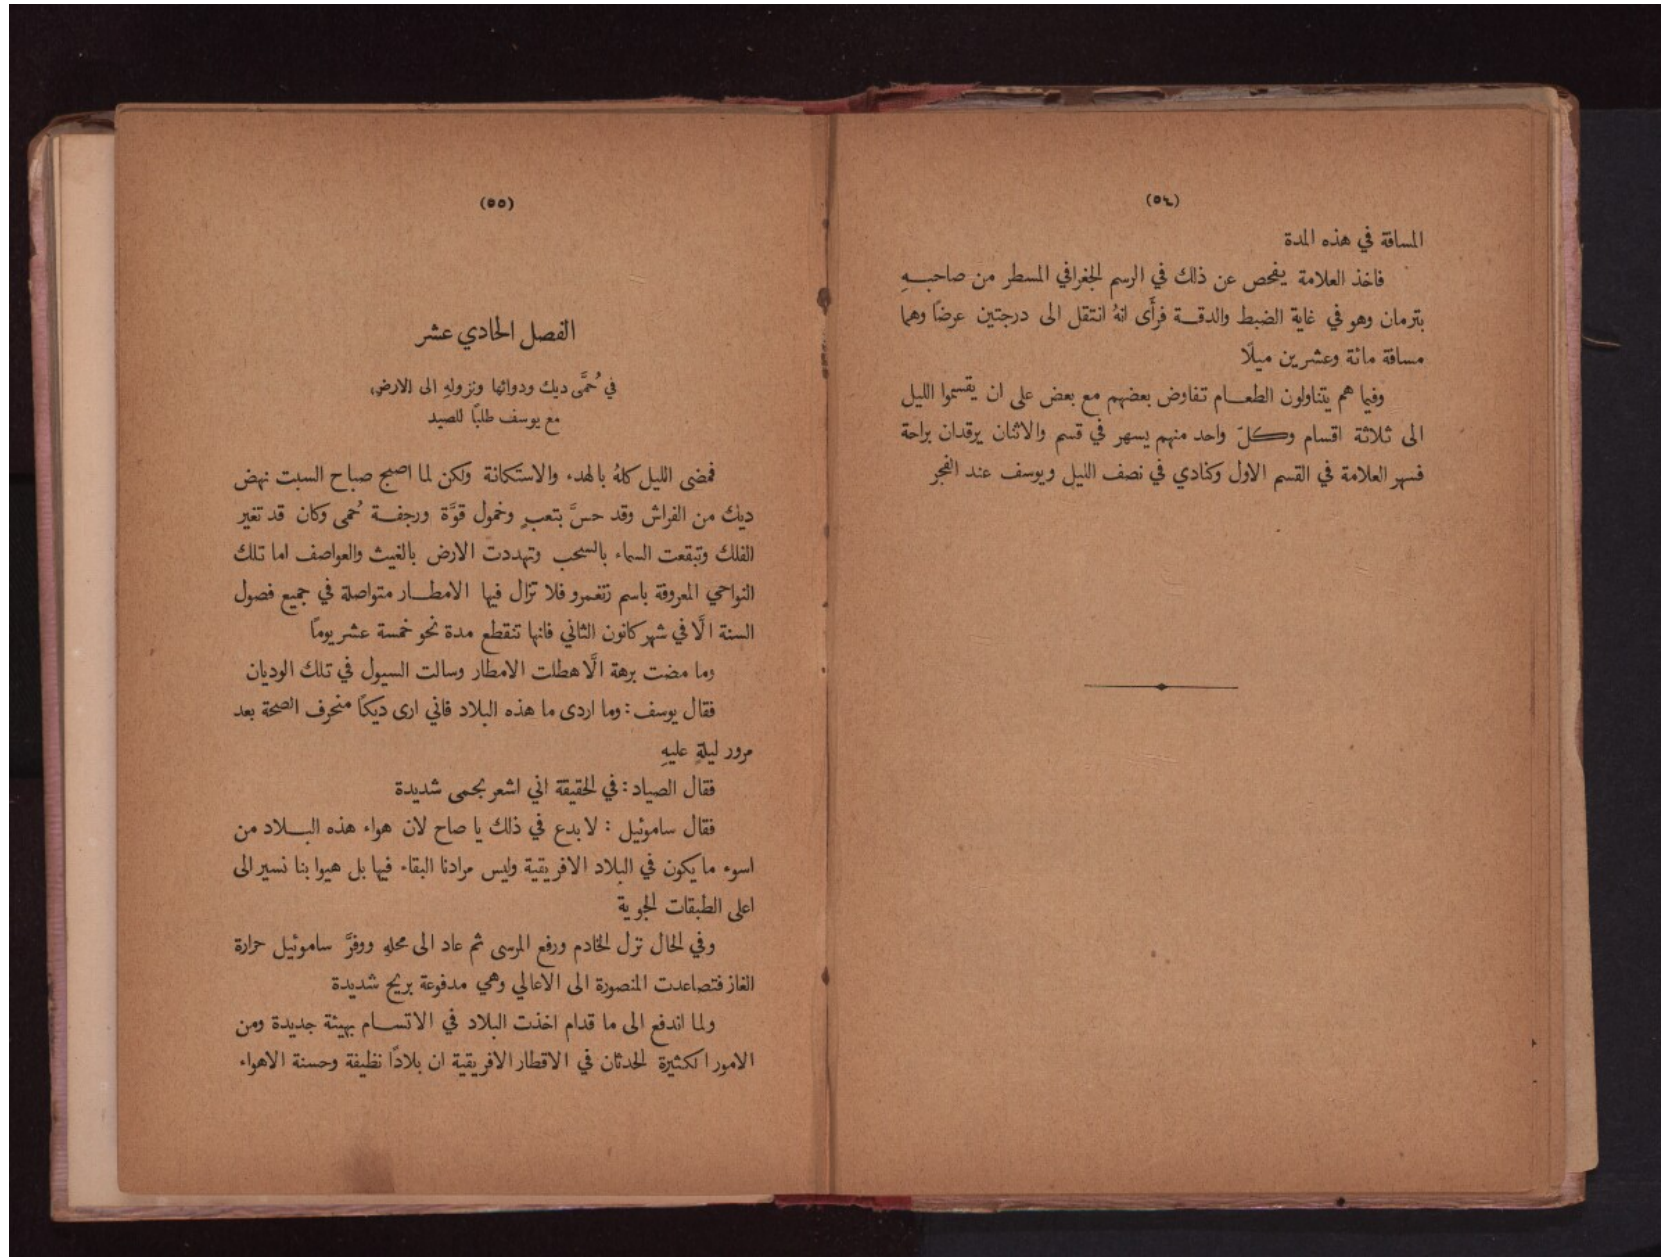 (٥٤)
المسافة في هذه المدة
فاخذ العلامة يفحص عن ذلك في الرسم الجغرافي المسطر من صاحبــهِ
بترمان وهو في غاية الضبط والدقــة فرأَى انهُ انتقل الى درجتين عرضًا وهما
مسافة مائة وعشرين ميلًا
وفيما هم يتناولون الطعــام تفاوض بعضهم مع بعض على ان يقسموا الليل
الى ثلاثة اقسام وكلّ واحد منهم يسهر في قسم والاثنان يرقدان براحة
فسهر العلامة في القسم الاول وكنادي في نصف الليل ويوسف عند الفجر
(٥٥)
الفصل الحادي عشر
في حُمَّى ديك ودوائها ونزولهِ الى الارض
مع يوسف طلبًا للصيد
فمضى الليل كلهُ بالهدء والاستكانة ولكن لما اصبح صباح السبت نهض
ديك من الفراش وقد حسَّ بتعبٍ وخمول قوَّة ورجفــة حُمى وكان قد تغير
الفلك وتبقعت السماء بالسحب وتهددت الارض بالغيث والعواصف اما تلك
النواحي المعروفة باسم زنغمرو فلا تزال فيها الامطــار متواصلة في جميع فصول
السنة الَّا في شهر كانون الثاني فانها تنقطع مدة نحو خمسة عشر يومًا
وما مضت برهة الَّا هطلت الامطار وسالت السيول في تلك الوديان
فقال يوسف : وما اردى ما هذه البلاد فاني ارى ديكًا منحرف الصحة بعد
مرور ليلةٍ عليهِ
فقال الصياد : في الحقيقة اني اشعر بحمى شديدة
فقال ساموئيل : لا بدع في ذلك يا صاح لان هواء هذه البــلاد من
اسوء ما يكون في البلاد الافريقية وليس مرادنا البقاء فيها بل هيوا بنا نسير الى
اعلى الطبقات الجوية
وفي الحال نزل الخادم ورفع المرسى ثم عاد الى محلهِ ووفرَّ ساموئيل حرارة
الغاز فتصاعدت المنصورة الى الاعالي وهي مدفوعة بريح شديدة
ولما اندفع الى ما قدام اخذت البلاد في الاتســام بهيئة جديدة ومن
الامور الكثيرة الحدثان في الاقطار الافريقية ان بلادًا نظيفة وحسنة الاهواء